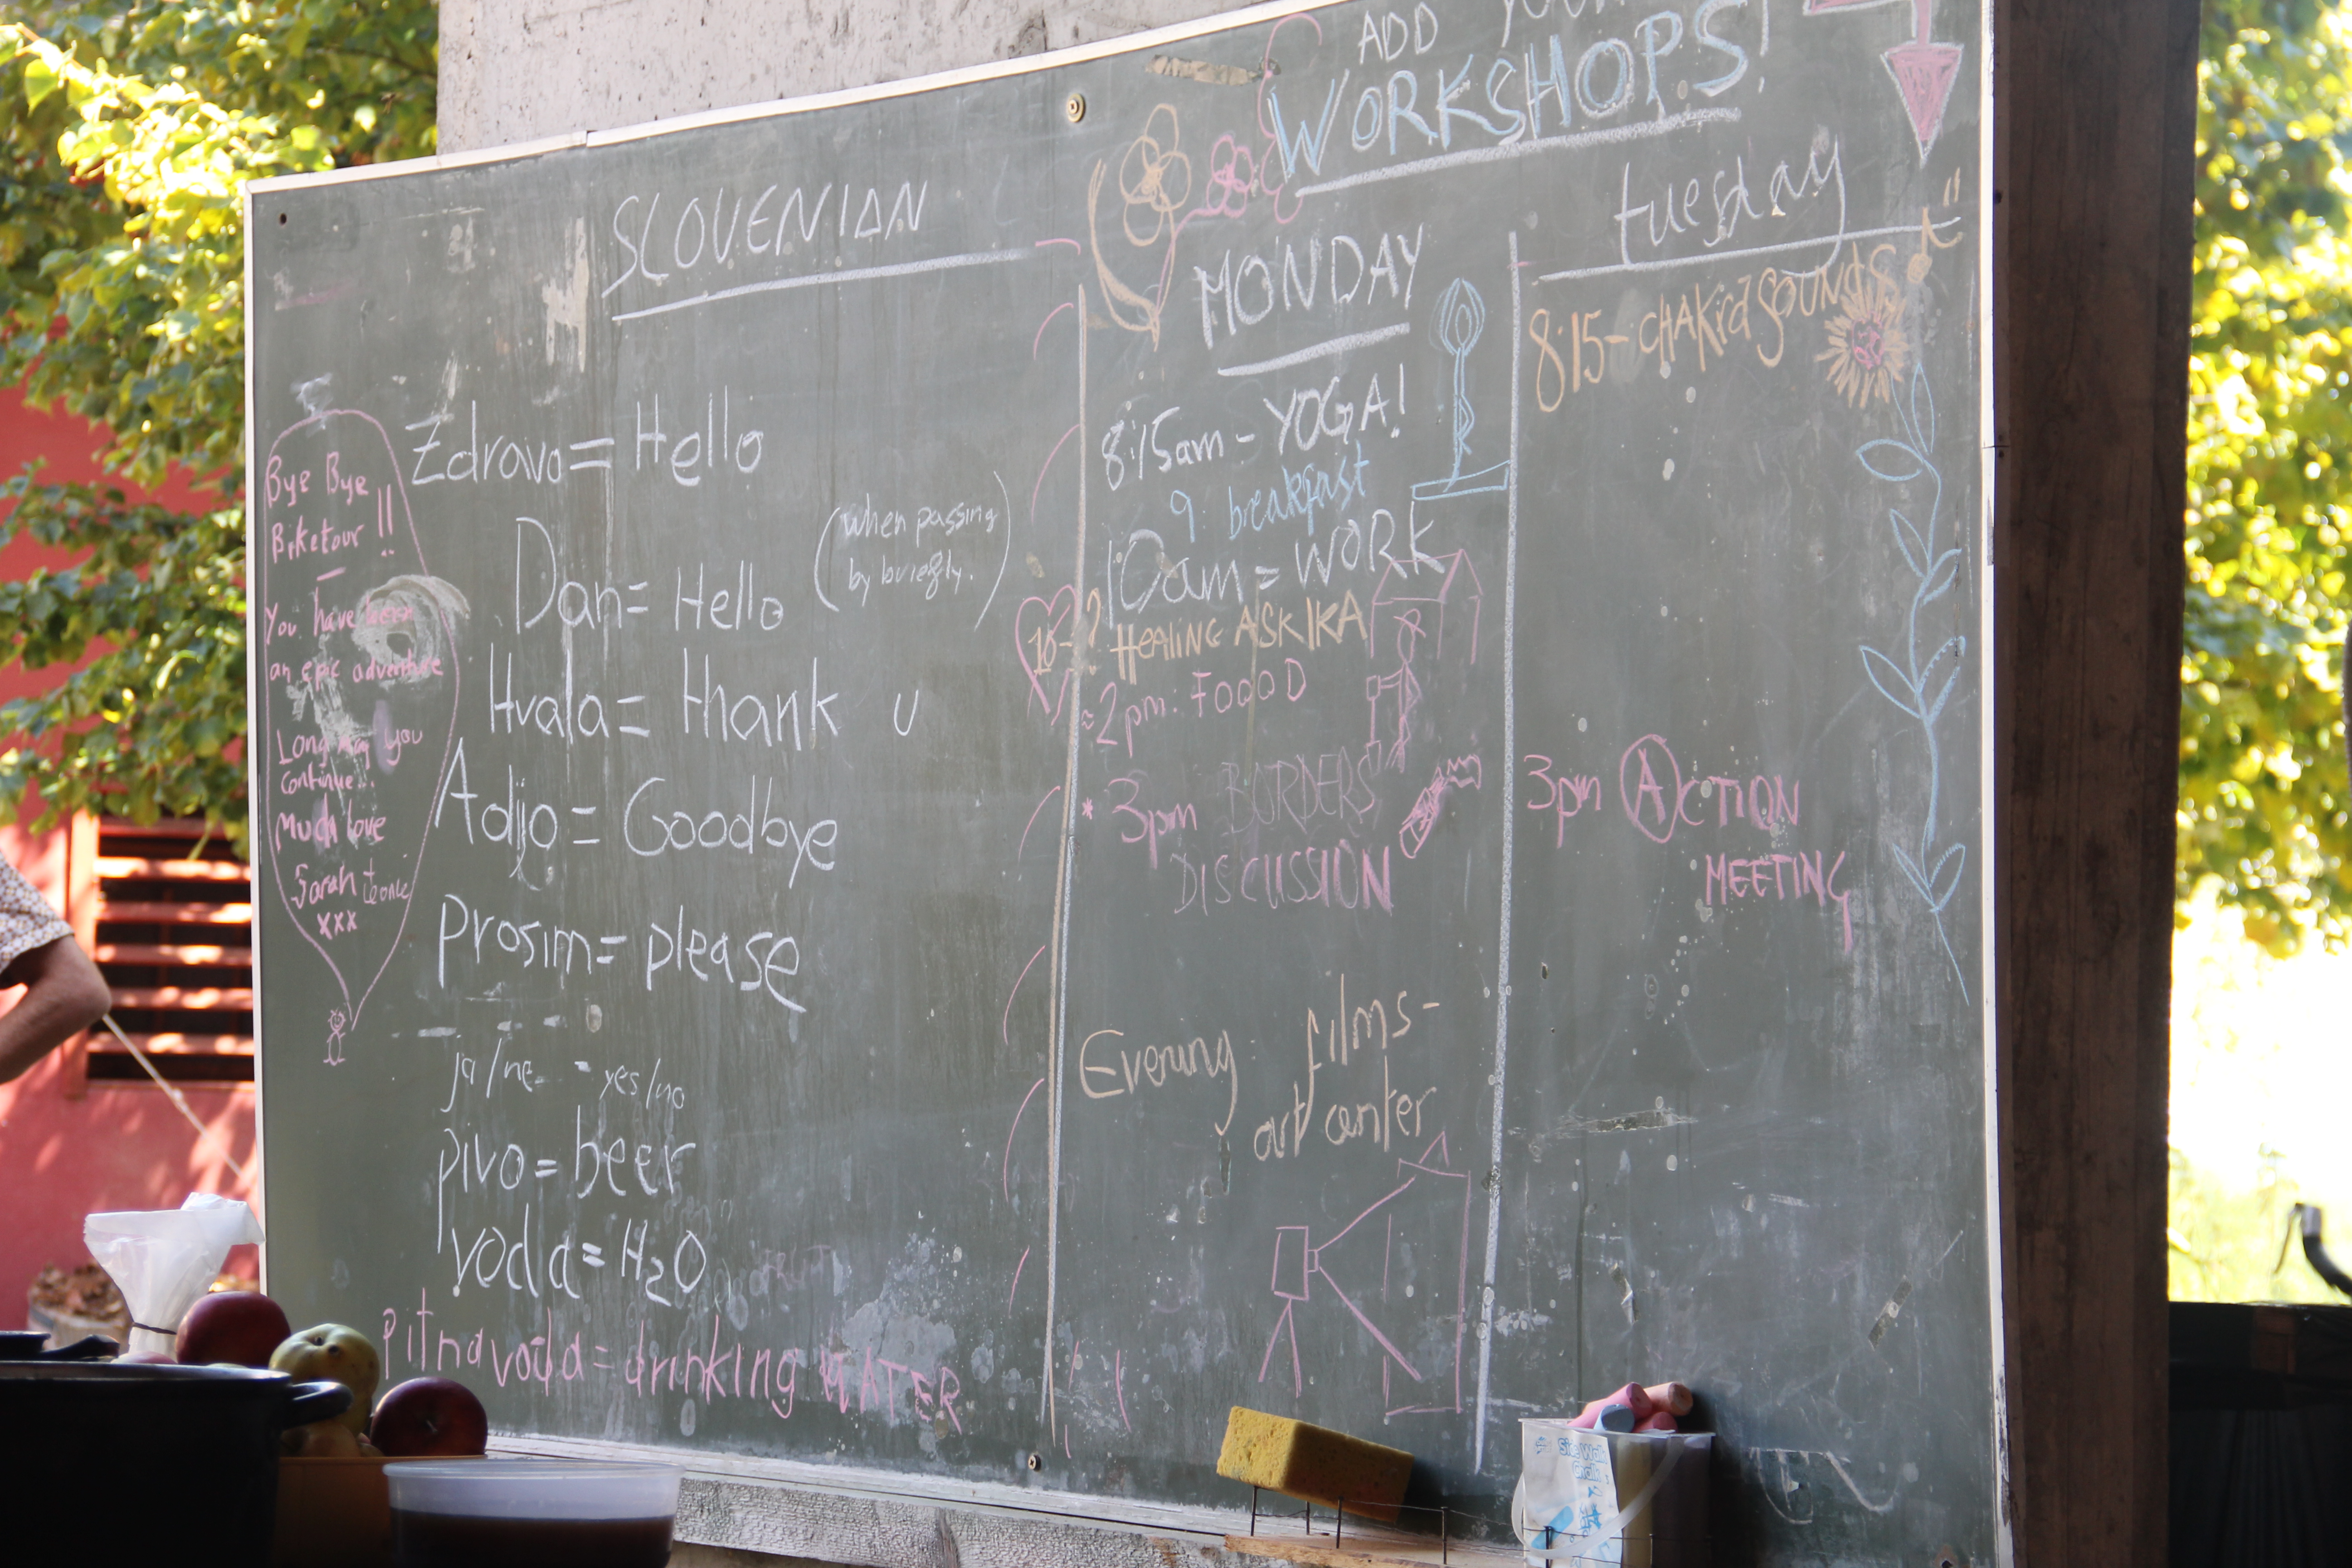 SLOVENIAN
Zdravo = Hello
Dan = Hello (when passing
by briefly.)
Hvala = thank u
Adijo = Goodbye
prosim = please
ja/ne - yes/no
pivo = beer
voda = H2O
pitna voda = drinking WATER
Bye Bye
Biketour !!
You have been
an epic adventure
Long may you
continue...
Much love
Sarah
xxx
ADD YOUR
WORKSHOPS!
MONDAY
8:15am - YOGA!
9: breakfast
10am = WORK
10-? HEALING ASK IKA
≈2pm: FOOOD
* 3pm BORDERS
DISCUSSION
Evening films-
art center
tuesday
8:15- CHAKRA SOUNDS
3pm ACTION
MEETING